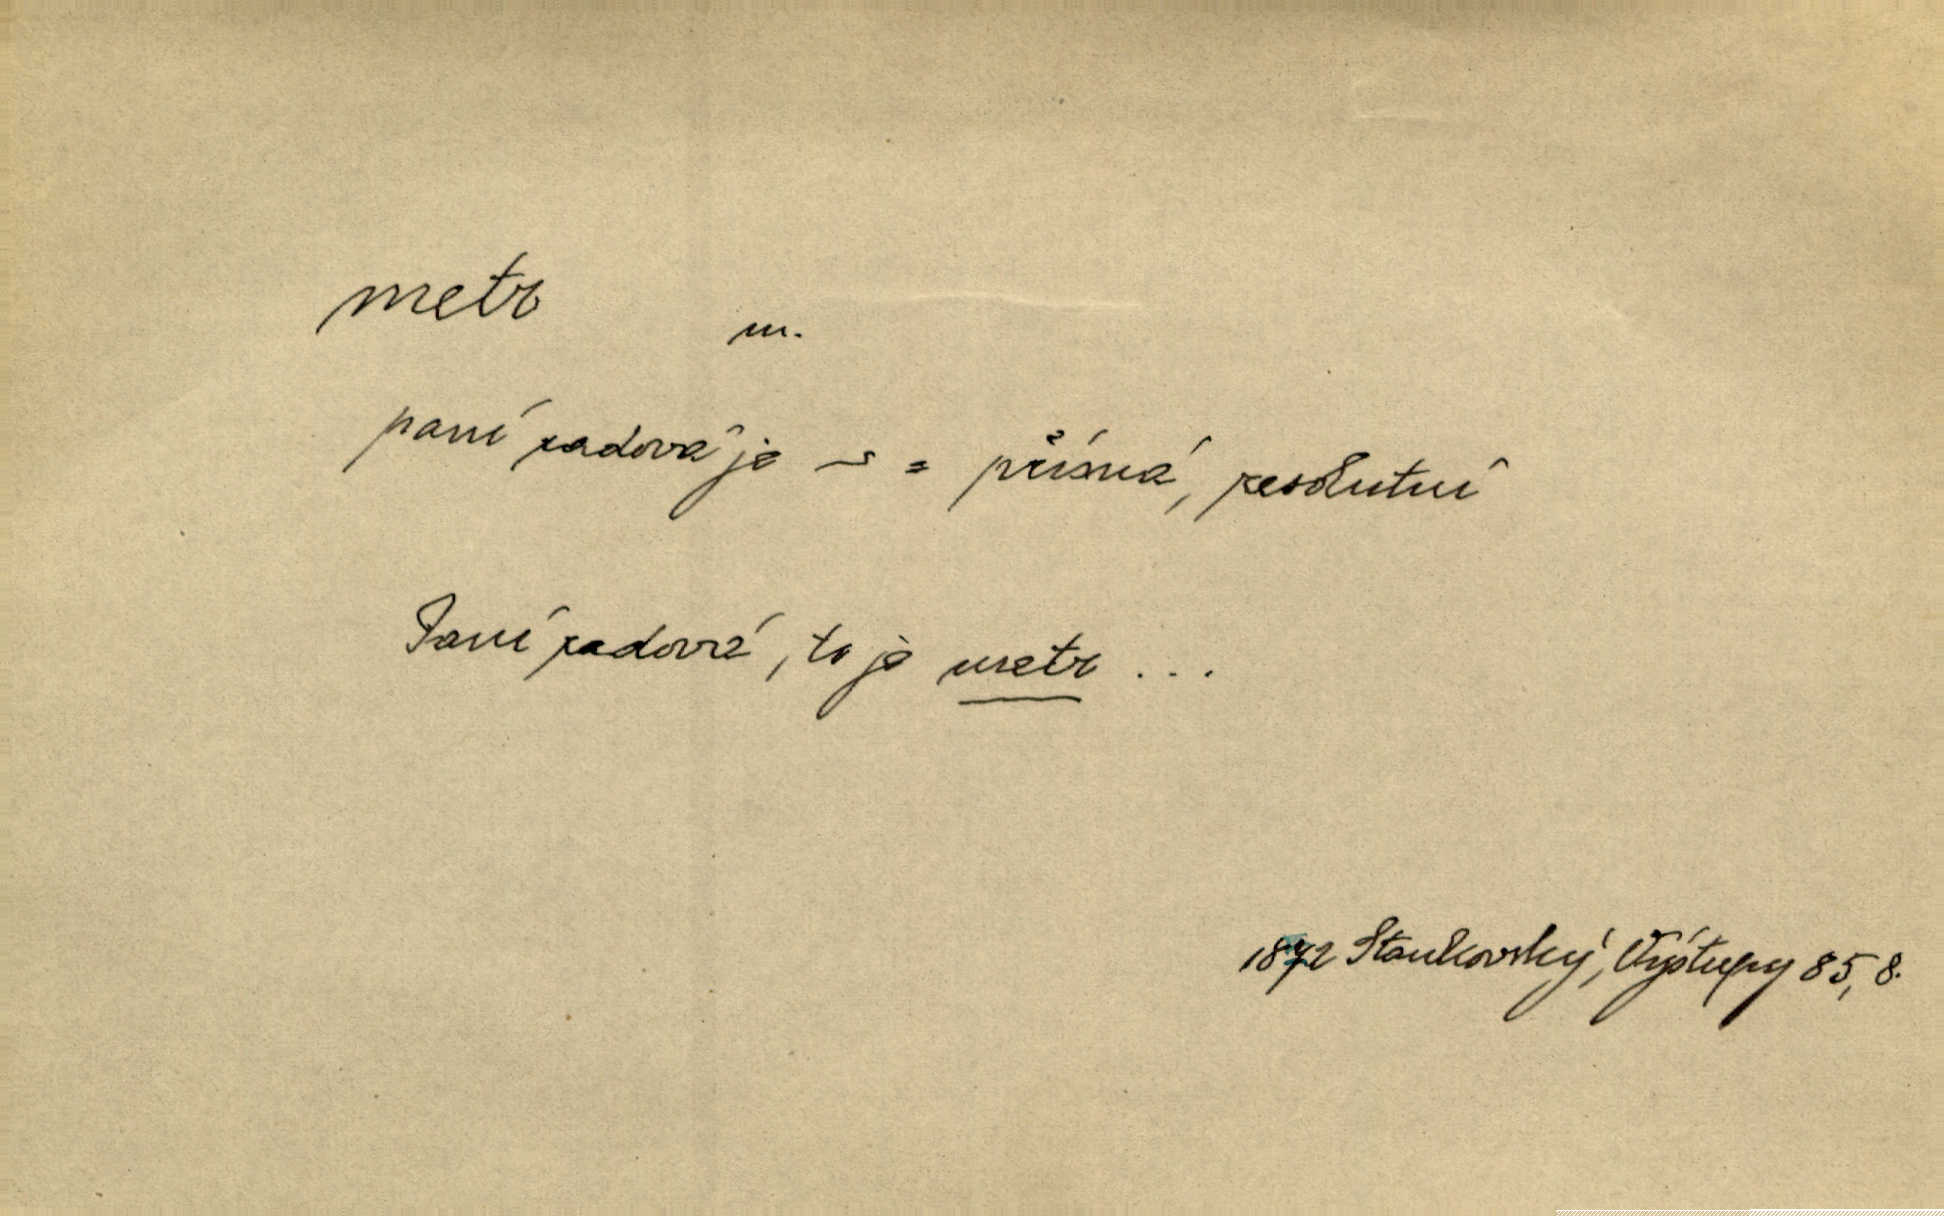 metr m.
paní radová je ~ = přísná, resolutní
Paní radová, to je metr ...
1872 Stankovský, Výstupy 85, 8.